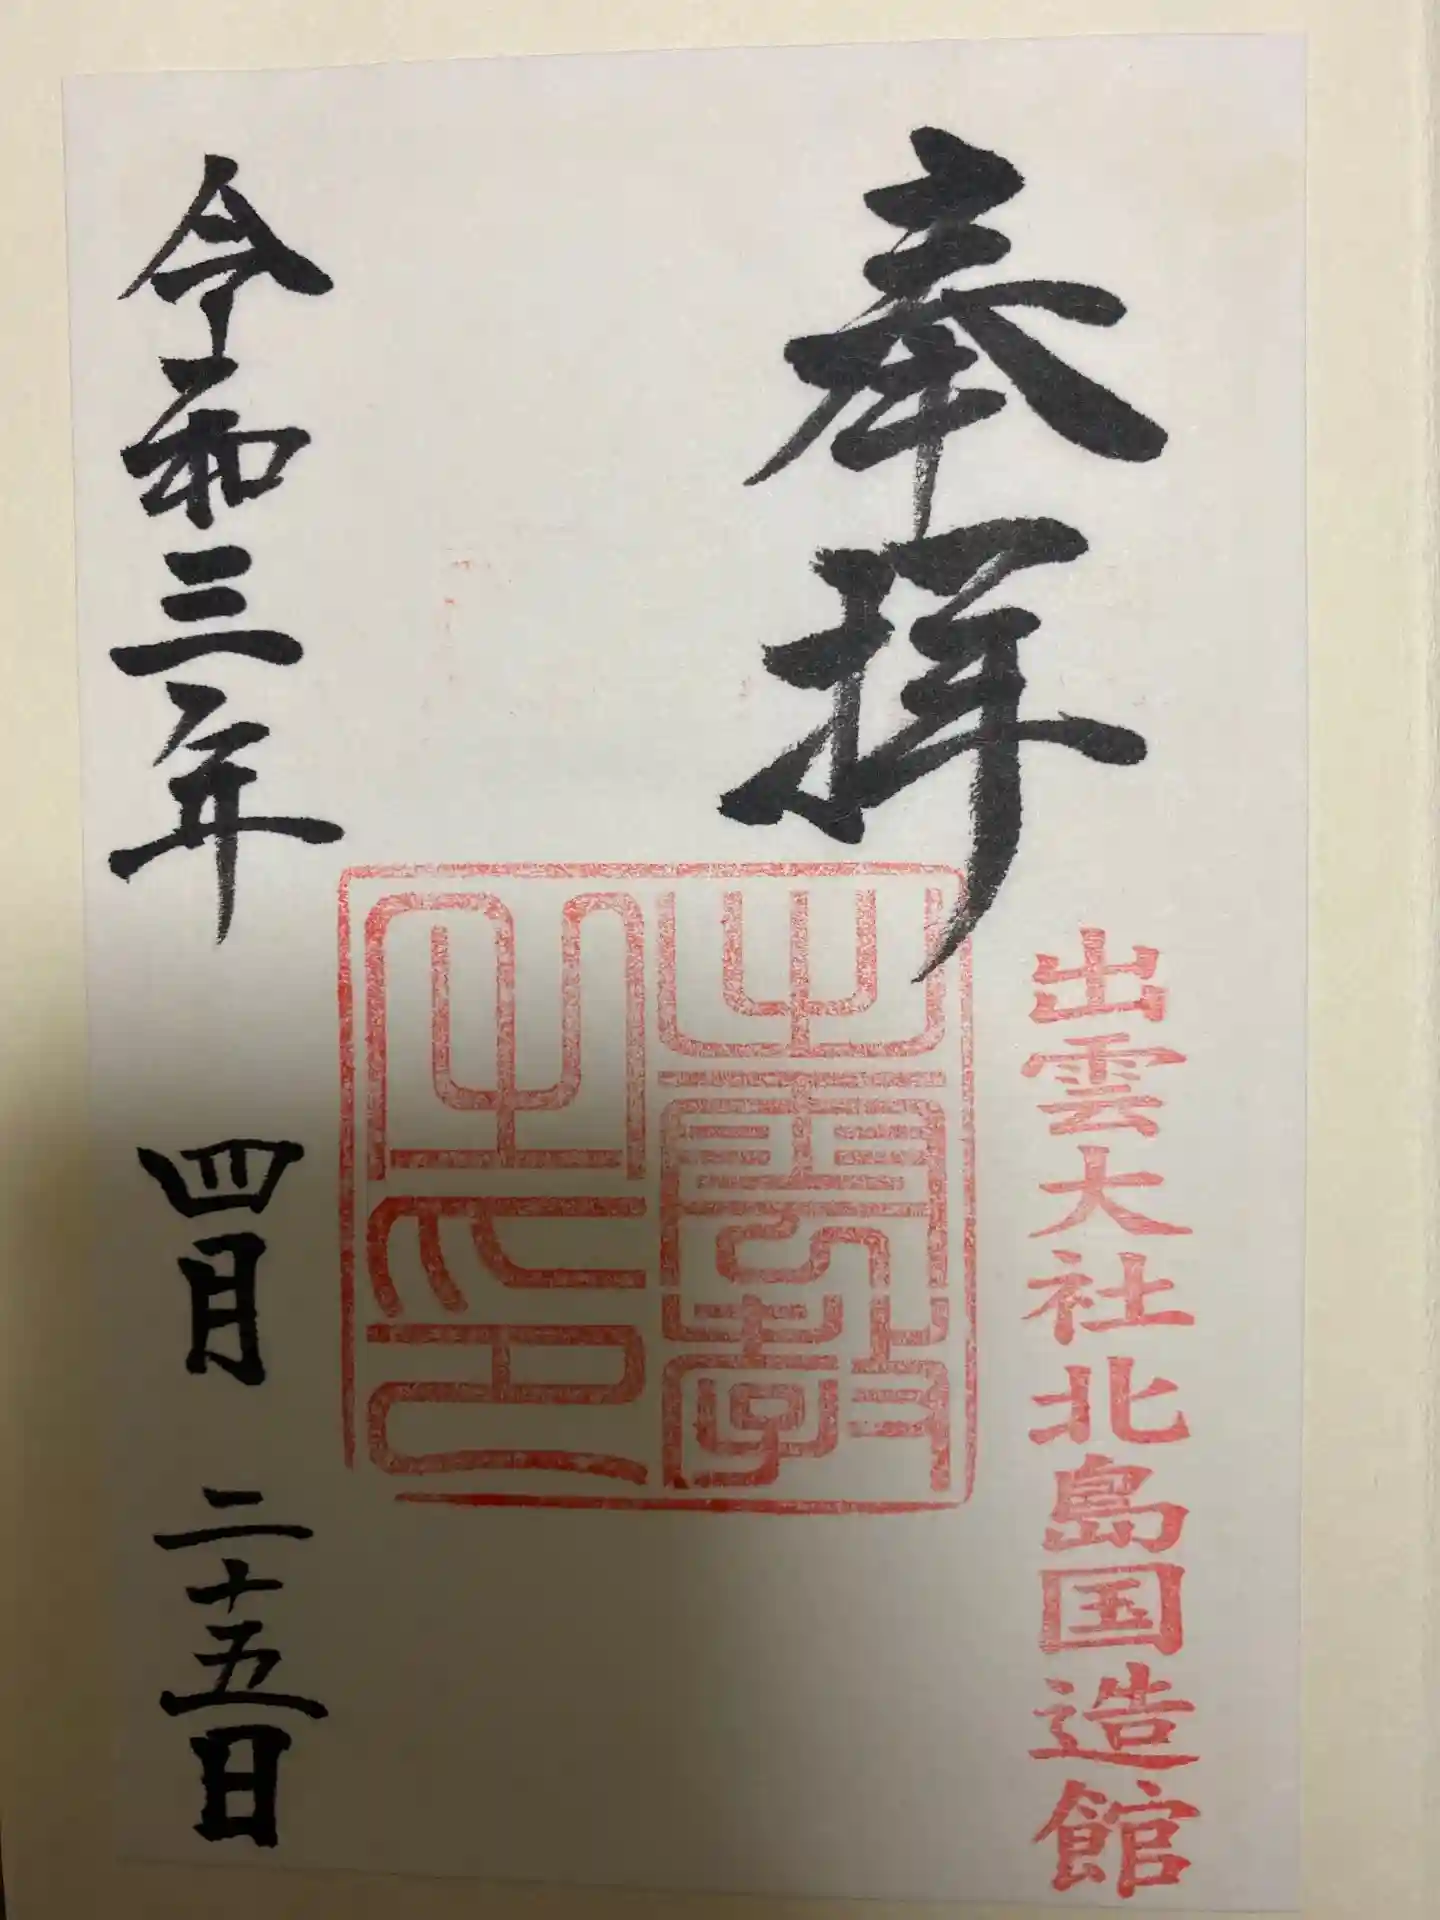 奉拝
出雲大社北島国造館
出雲教之印
令和三年 四月 二十五日